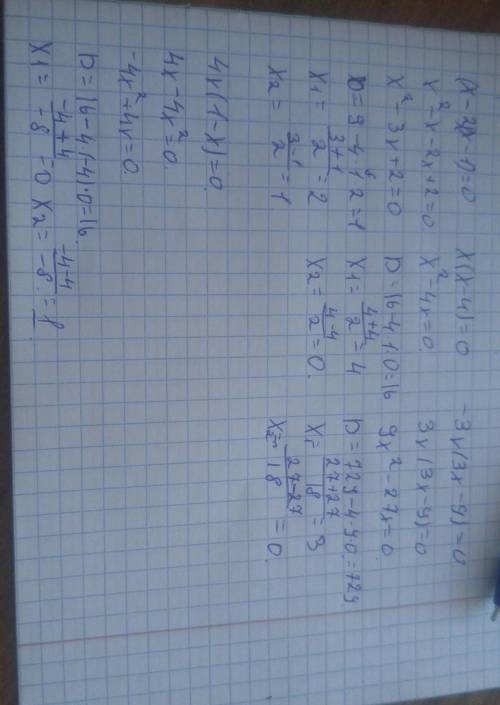 (x-2)(x-1)=0
x²-x-2x+2=0
x²-3x+2=0
D=9-4·1·2=1
x1= 3+1/2 =2
x2= 3-1/2 =1
x(x-4)=0
x²-4x=0
D=16-4·1·0=16
x1= 4+4/2 =4
x2= 4-4/2 =0.
-3x(3x-9)=0
3x(3x-9)=0
9x²-27x=0.
D=729-4·9·0.=729
x1= 27+27/18 =3
x2= 27-27/18 =0.
4x(1-x)=0.
4x-4x²=0.
-4x²+4x=0.
D=16-4·(-4)·0=16.
x1= -4+4/-8 =0 x2= -4-4/-8. =1.